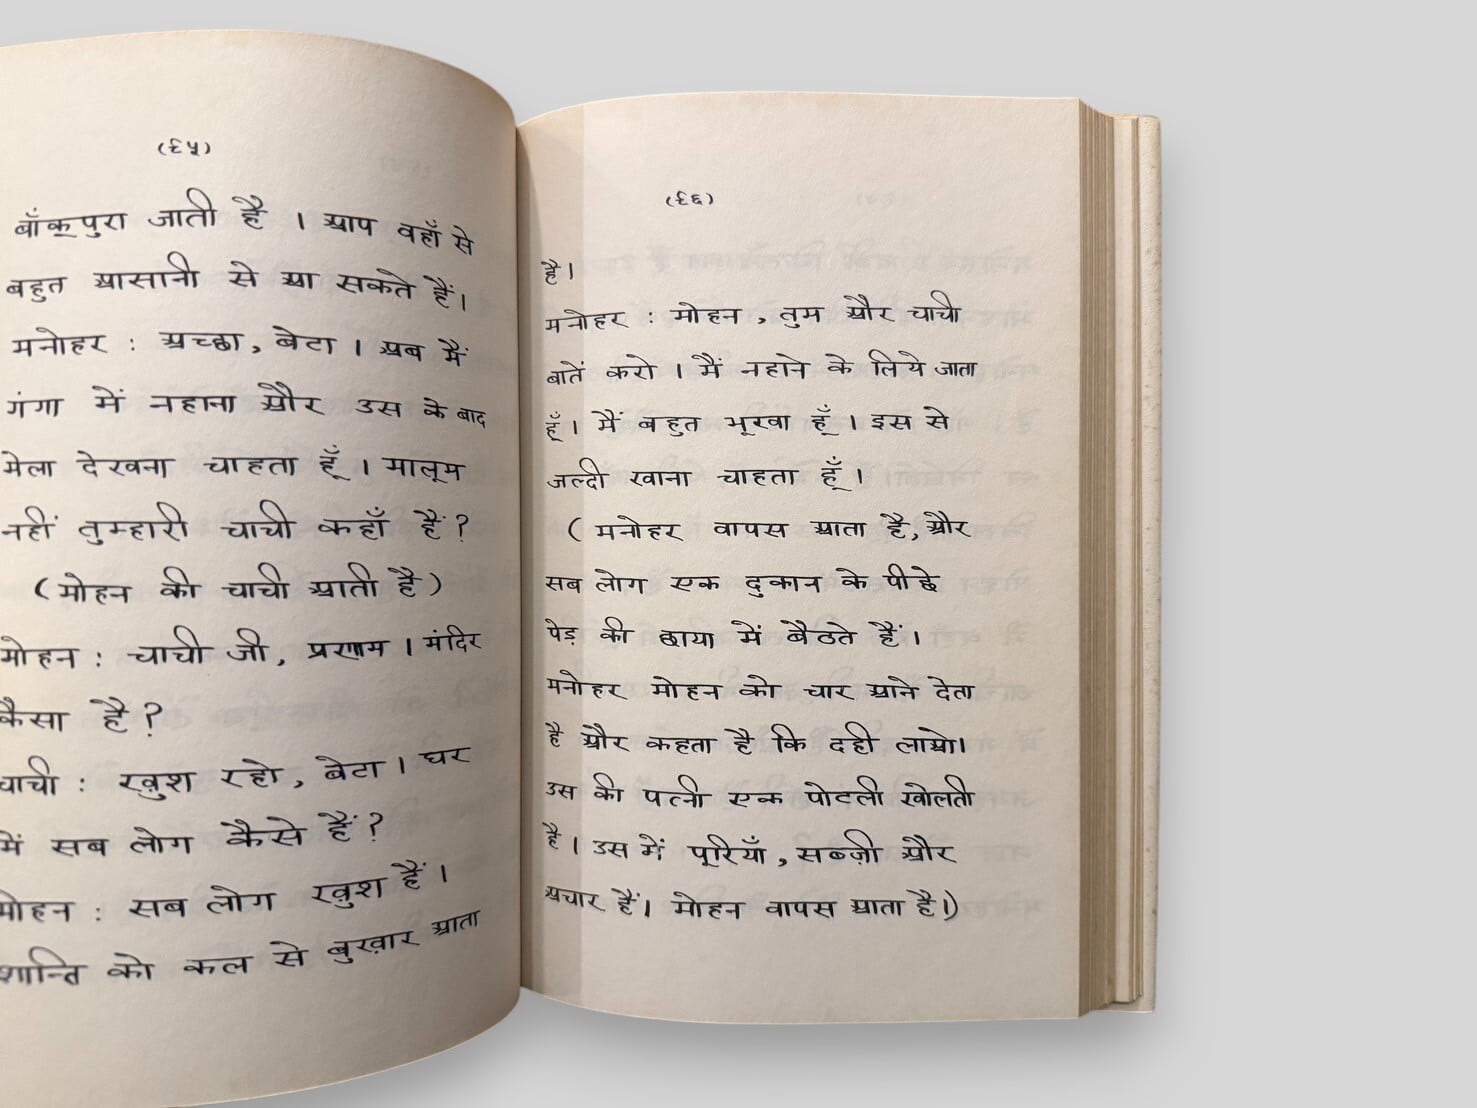 (६५)
बाँकूपुरा जाती है । आप वहाँ से
बहुत आसानी से आ सकते हैं।
मनोहर : अच्छा, बेटा । अब मैं
गंगा में नहाना और उस के बाद
मेला देखना चाहता हूँ । मालूम
नहीं तुम्हारी चाची कहाँ हैं ?
(मोहन की चाची आती है)
मोहन : चाची जी, प्रणाम । मंदिर
कैसा है ?
चाची : ख़ुश रहो, बेटा । घर
में सब लोग कैसे हैं ?
मोहन : सब लोग ख़ुश हैं ।
शान्ति को कल से बुख़ार आता
(६६)
है।
मनोहर : मोहन , तुम और चाची
बातें करो । मैं नहाने के लिये जाता
हूँ। मैं बहुत भूखा हूँ । इस से
जल्दी खाना चाहता हूँ ।
( मनोहर वापस आता है, और
सब लोग एक दुकान के पीछे
पेड़ की छाया में बैठते हैं।
मनोहर मोहन को चार आने देता
है और कहता है कि दही लाओ।
उस की पत्नी एक पोटली खोलती
है। उस में पूरियाँ , सब्ज़ी और
अचार हैं। मोहन वापस आता है।)